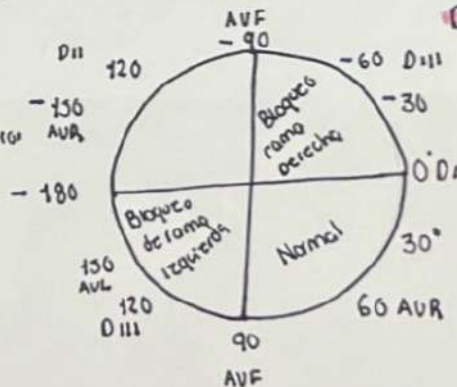 AVF
- 90
DII
120
- 60 DIII
- 150
AVR
- 30
- 180
0°
Bloqueo
rama
Derecha
Bloqueo
de rama
Izquierda
Normal
30°
150
AVL
120
DIII
60 AVR
90
AVF